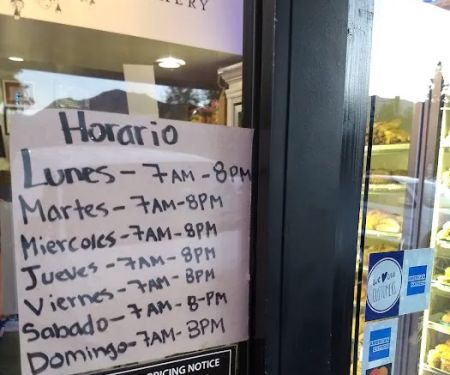 Horario
Lunes - 7AM - 8PM
Martes - 7AM - 8PM
Miercoles - 7AM - 8PM
Jueves - 7AM - 8PM
Viernes - 7AM - 8PM
Sabado - 7AM - 8-PM
Domingo - 7AM - 8PM
PRICING NOTICE
WE
OUR
CUSTOMERS
AMERICAN
EXPRESS
AMERICAN
EXPRESS